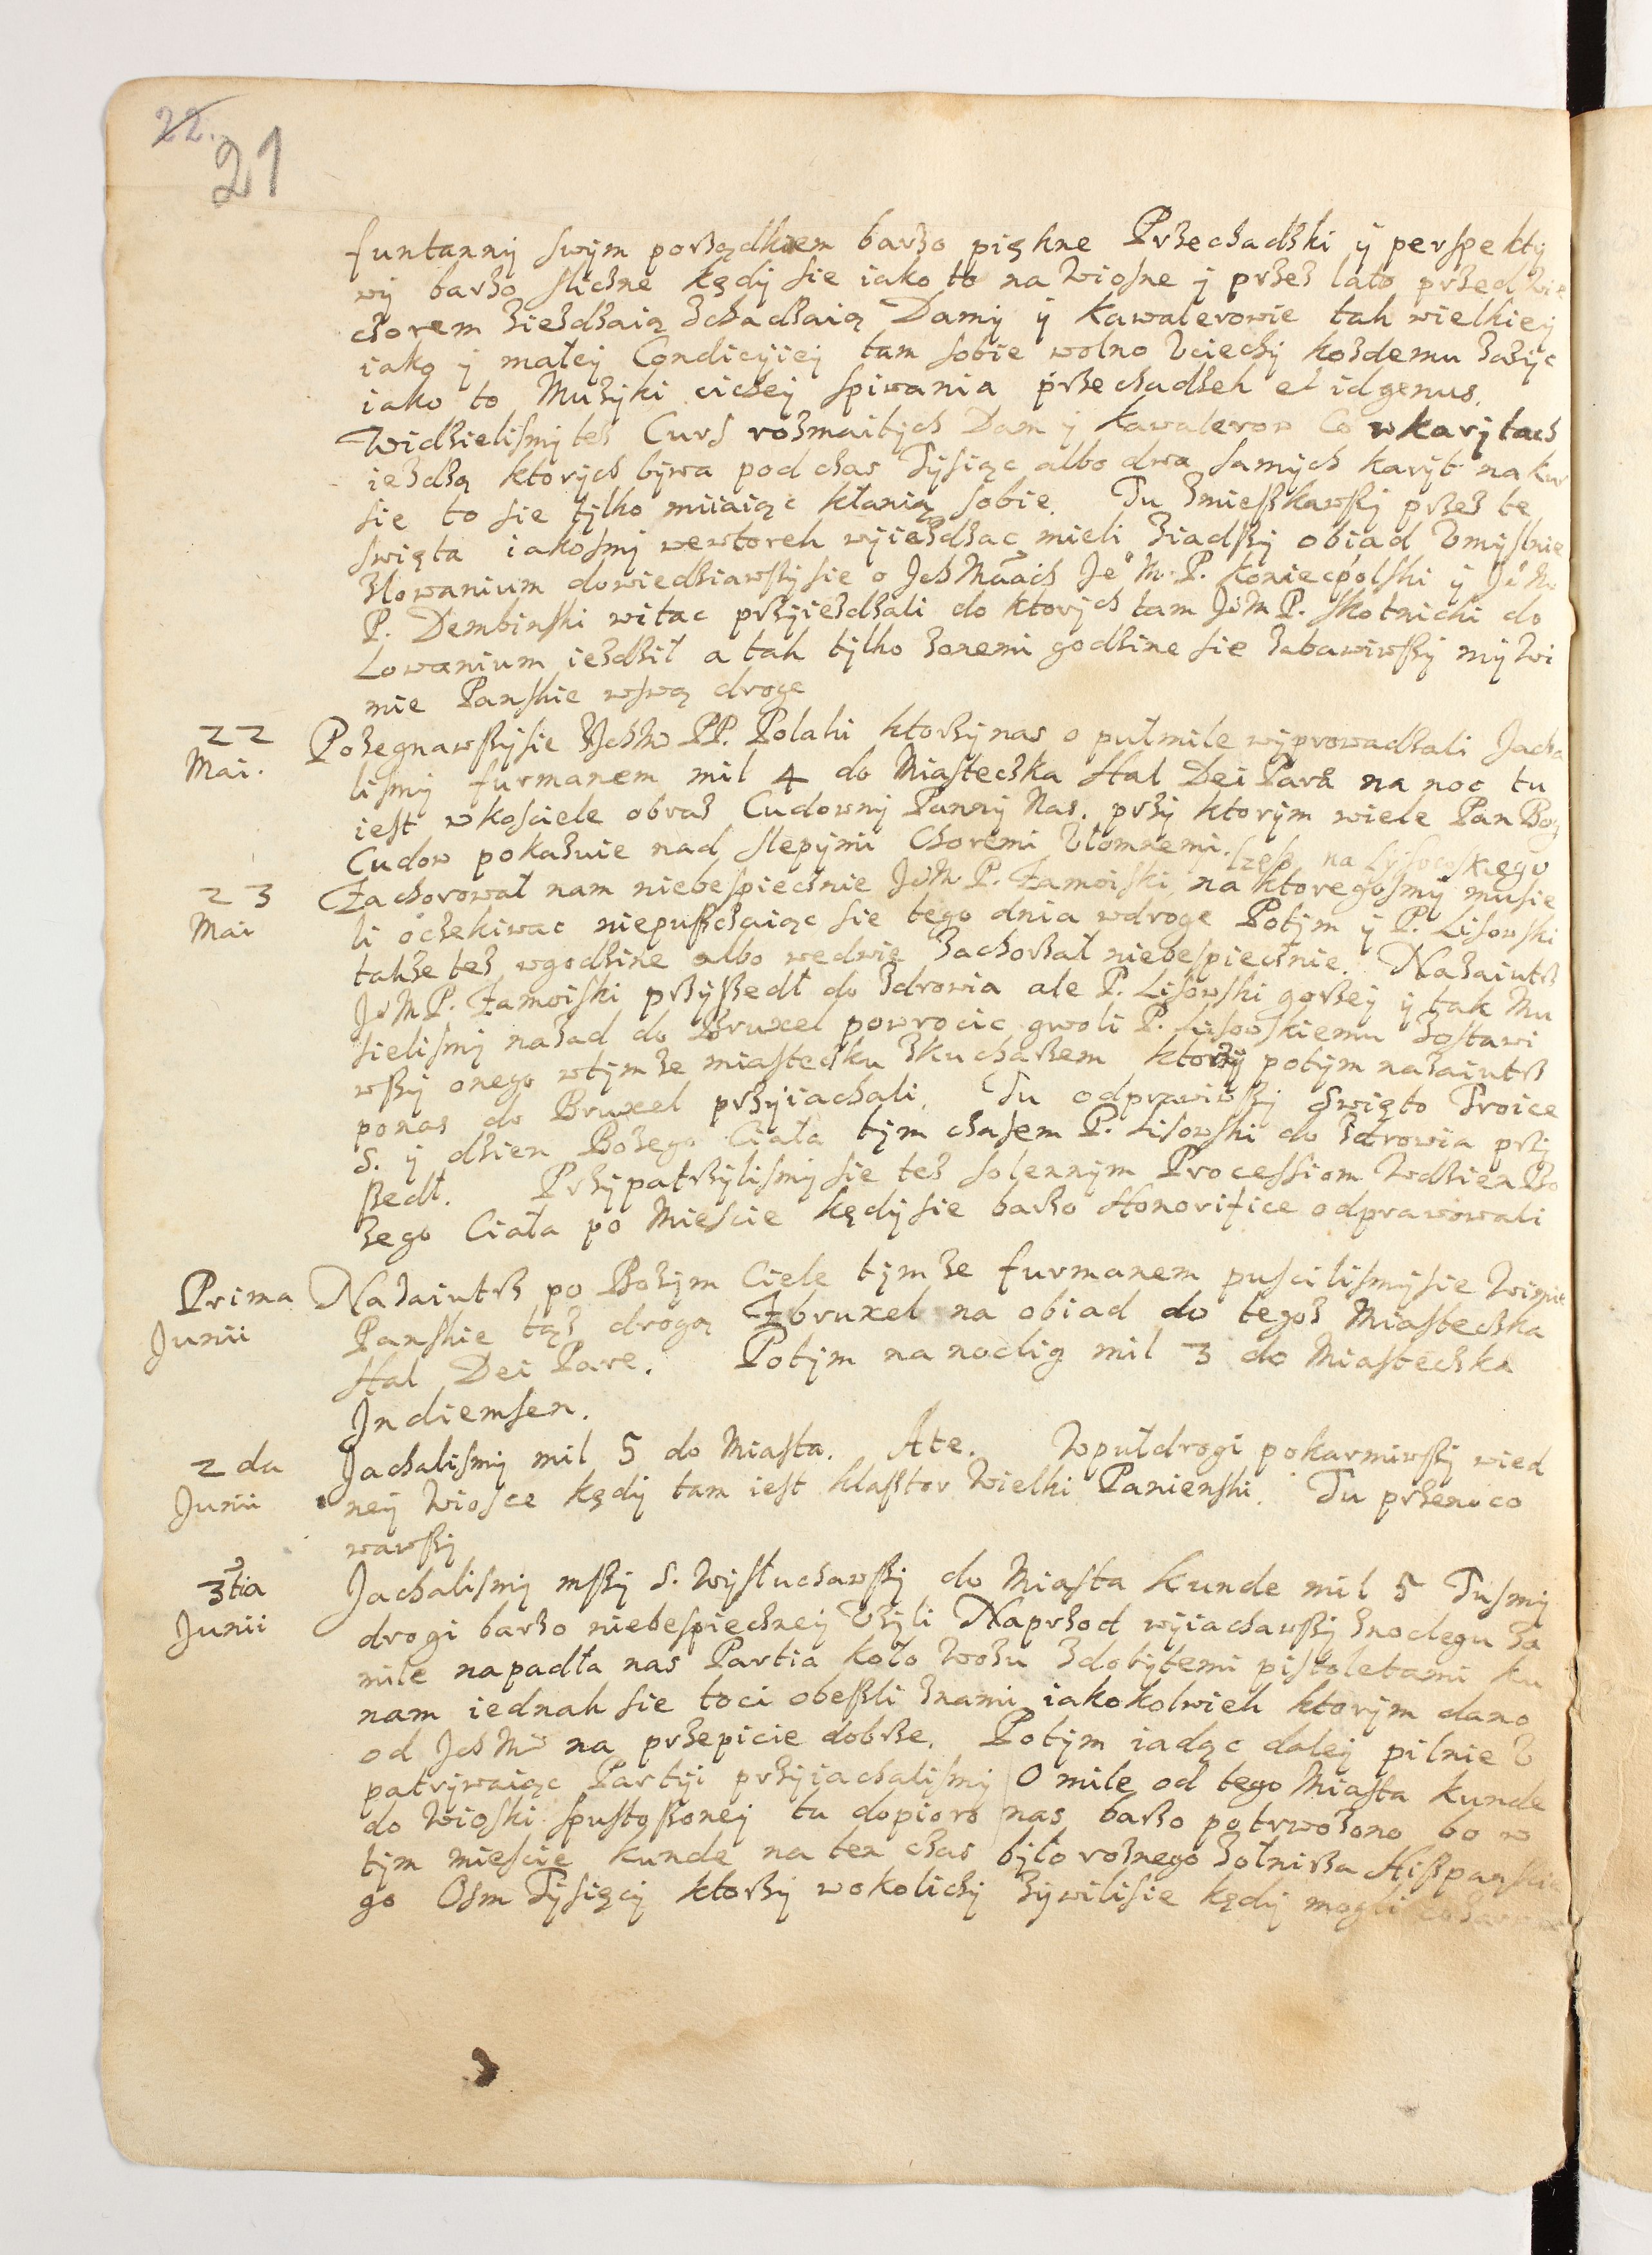 22.
21
funtanny swym porządkiem barzo piękne Przechadzki y perspekty
wy barzo sliczne kędy sie iako to na wiosne y przez lato przed wie
czorem ziezdzaią zchadzaią Damy y Kawalerowie tak wielkiey
iako y małey Condicyiey tam sobie wolno Uciechy kozdemu zazyc
iako to Muzyki cichey spiwania przechadzek et id genus.
Widzielismy tez Curs rozmaitych Dam y Kawalerow Co w karytach
iezdzą ktorych bywa pod czas Tysiąc albo dwa samych karyt na kur
sie to sie tylko miiaiąc kłanią sobie. Tu zmieszkawszy przez te
swięta iakosmy we wtorek wyiezdzac mieli ziadszy obiad Umyslnie
z Lowanium dowiedziawszy sie o Jch Mciach Je° M. P. Koniecpolski y Je° M.
P. Dembinski witac przyiezdzali do ktorych tam J°M P. Skotnicki do
Lowanium iezdził a tak tylko z onemi godzine sie zabawiwszy my w i
mie Panskie w swą droge
22 Mai. Pozegnawszy sie z Jch M PP. Polaki ktorzy nas o pułmile wyprowadzali Jacha
lismy furmanem mil 4 do Miasteczka Hal Dei Para na noc tu
iest w kosciele obraz Cudowny Panny Nas. przy ktorym wiele Pan Bog
Cudow pokazuie nad slepymi Choremi Ułomnemi.
23 Mai Zachorował nam niebespiecznie J°M P. Zamoiski na ktoregosmy musie
li oczekiwac niepuszczaiąc sie tego dnia w droge Potym y P. Lisowski
takze tez w godzine albo we dwie zachorzał niebespiecznie. Nazaiutrz
J°M P. Zamoiski przyszedł do zdrowia ale P. Lisowski gorzey y tak Mu
sielismy nazad do Bruxel powrocic gwoli P. Lisowskiemu zostawi
wszy onego w tymze miasteczku z kucharzem ktorzy potym nazaiutrz
po nas do Bruxel przyiachali. Tu odprawiwszy Swięto Troice
S. y dzien Bozego Ciała tym czasem P. Lisowski do zdrowia przy
szedł. Przypatrzylismy sie tez solennym Processiom w dzien Bo
zego Ciała po Miescie kędy sie barzo Honorifice odprawowali
Prima Junii Nazaiutrz po Bozym Ciele tymze furmanem puscilismy sie w imie
Panskie tąz drogą z bruxel na obiad do tegoz Miasteczka
Hal Dei Pare. Potym na noclig mil 3 do Miasteczka
Jndiemsen.
2 da Junii Jachalismy mil 5 do Miasta. Ate. w puł drogi pokarmiwszy w ied
ney wiosce kędy tam iest klasztor wielki Panienski. Tu przenoco
wawszy
3 tia Junii Jachalismy mszy S. wysłuchawszy do Miasta Kunde mil 5 Tusmy
drogi barzo niebespieczney Uzyli Naprzod wyiachawszy z noclegu za
mile napadła nas Partia koło wozu z dobytemi pistoletami ku
nam iednak sie toci obeszli z nami iakokolwiek ktorym dano
od Jch M na przepicie dobrze. Potym iadąc daley pilnie U
patrywaiąc Partyi przyiachalismy O mile od tego Miasta Kunde
do wioski spustoszoney tu dopioro nas barzo potrwozono bo w
tym miescie Kunde na ten czas było roznego zołnirza Hiszpanskie
go Osm Tysięcy ktorzy w okolicy zywili sie kędy mogli